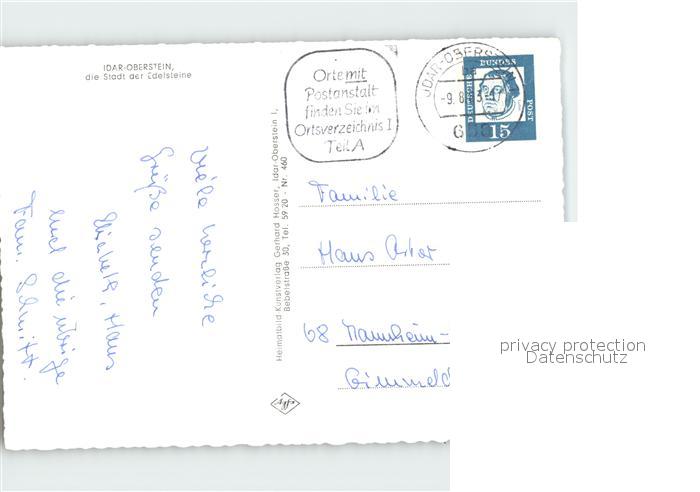 IDAR-OBERSTEIN,
die Stadt der Edelsteine
Orte mit
Postanstalt
finden Sie im
Ortsverzeichnis I
Teil A
IDAR-OBERS
-9. 8.
DEUTSCHE
BUNDES
POST
15
Viele herzliche
Grüße senden
Elisabeth, Hans
und die übrige
Fam. Schmitt.
Heimatbild Kunstverlag Gerhard Hosser, Idar-Oberstein I,
Bebelstraße 30, Tel. 5920 - Nr. 460
Familie
Hans
68 Mannheim-
privacy protection
Datenschutz